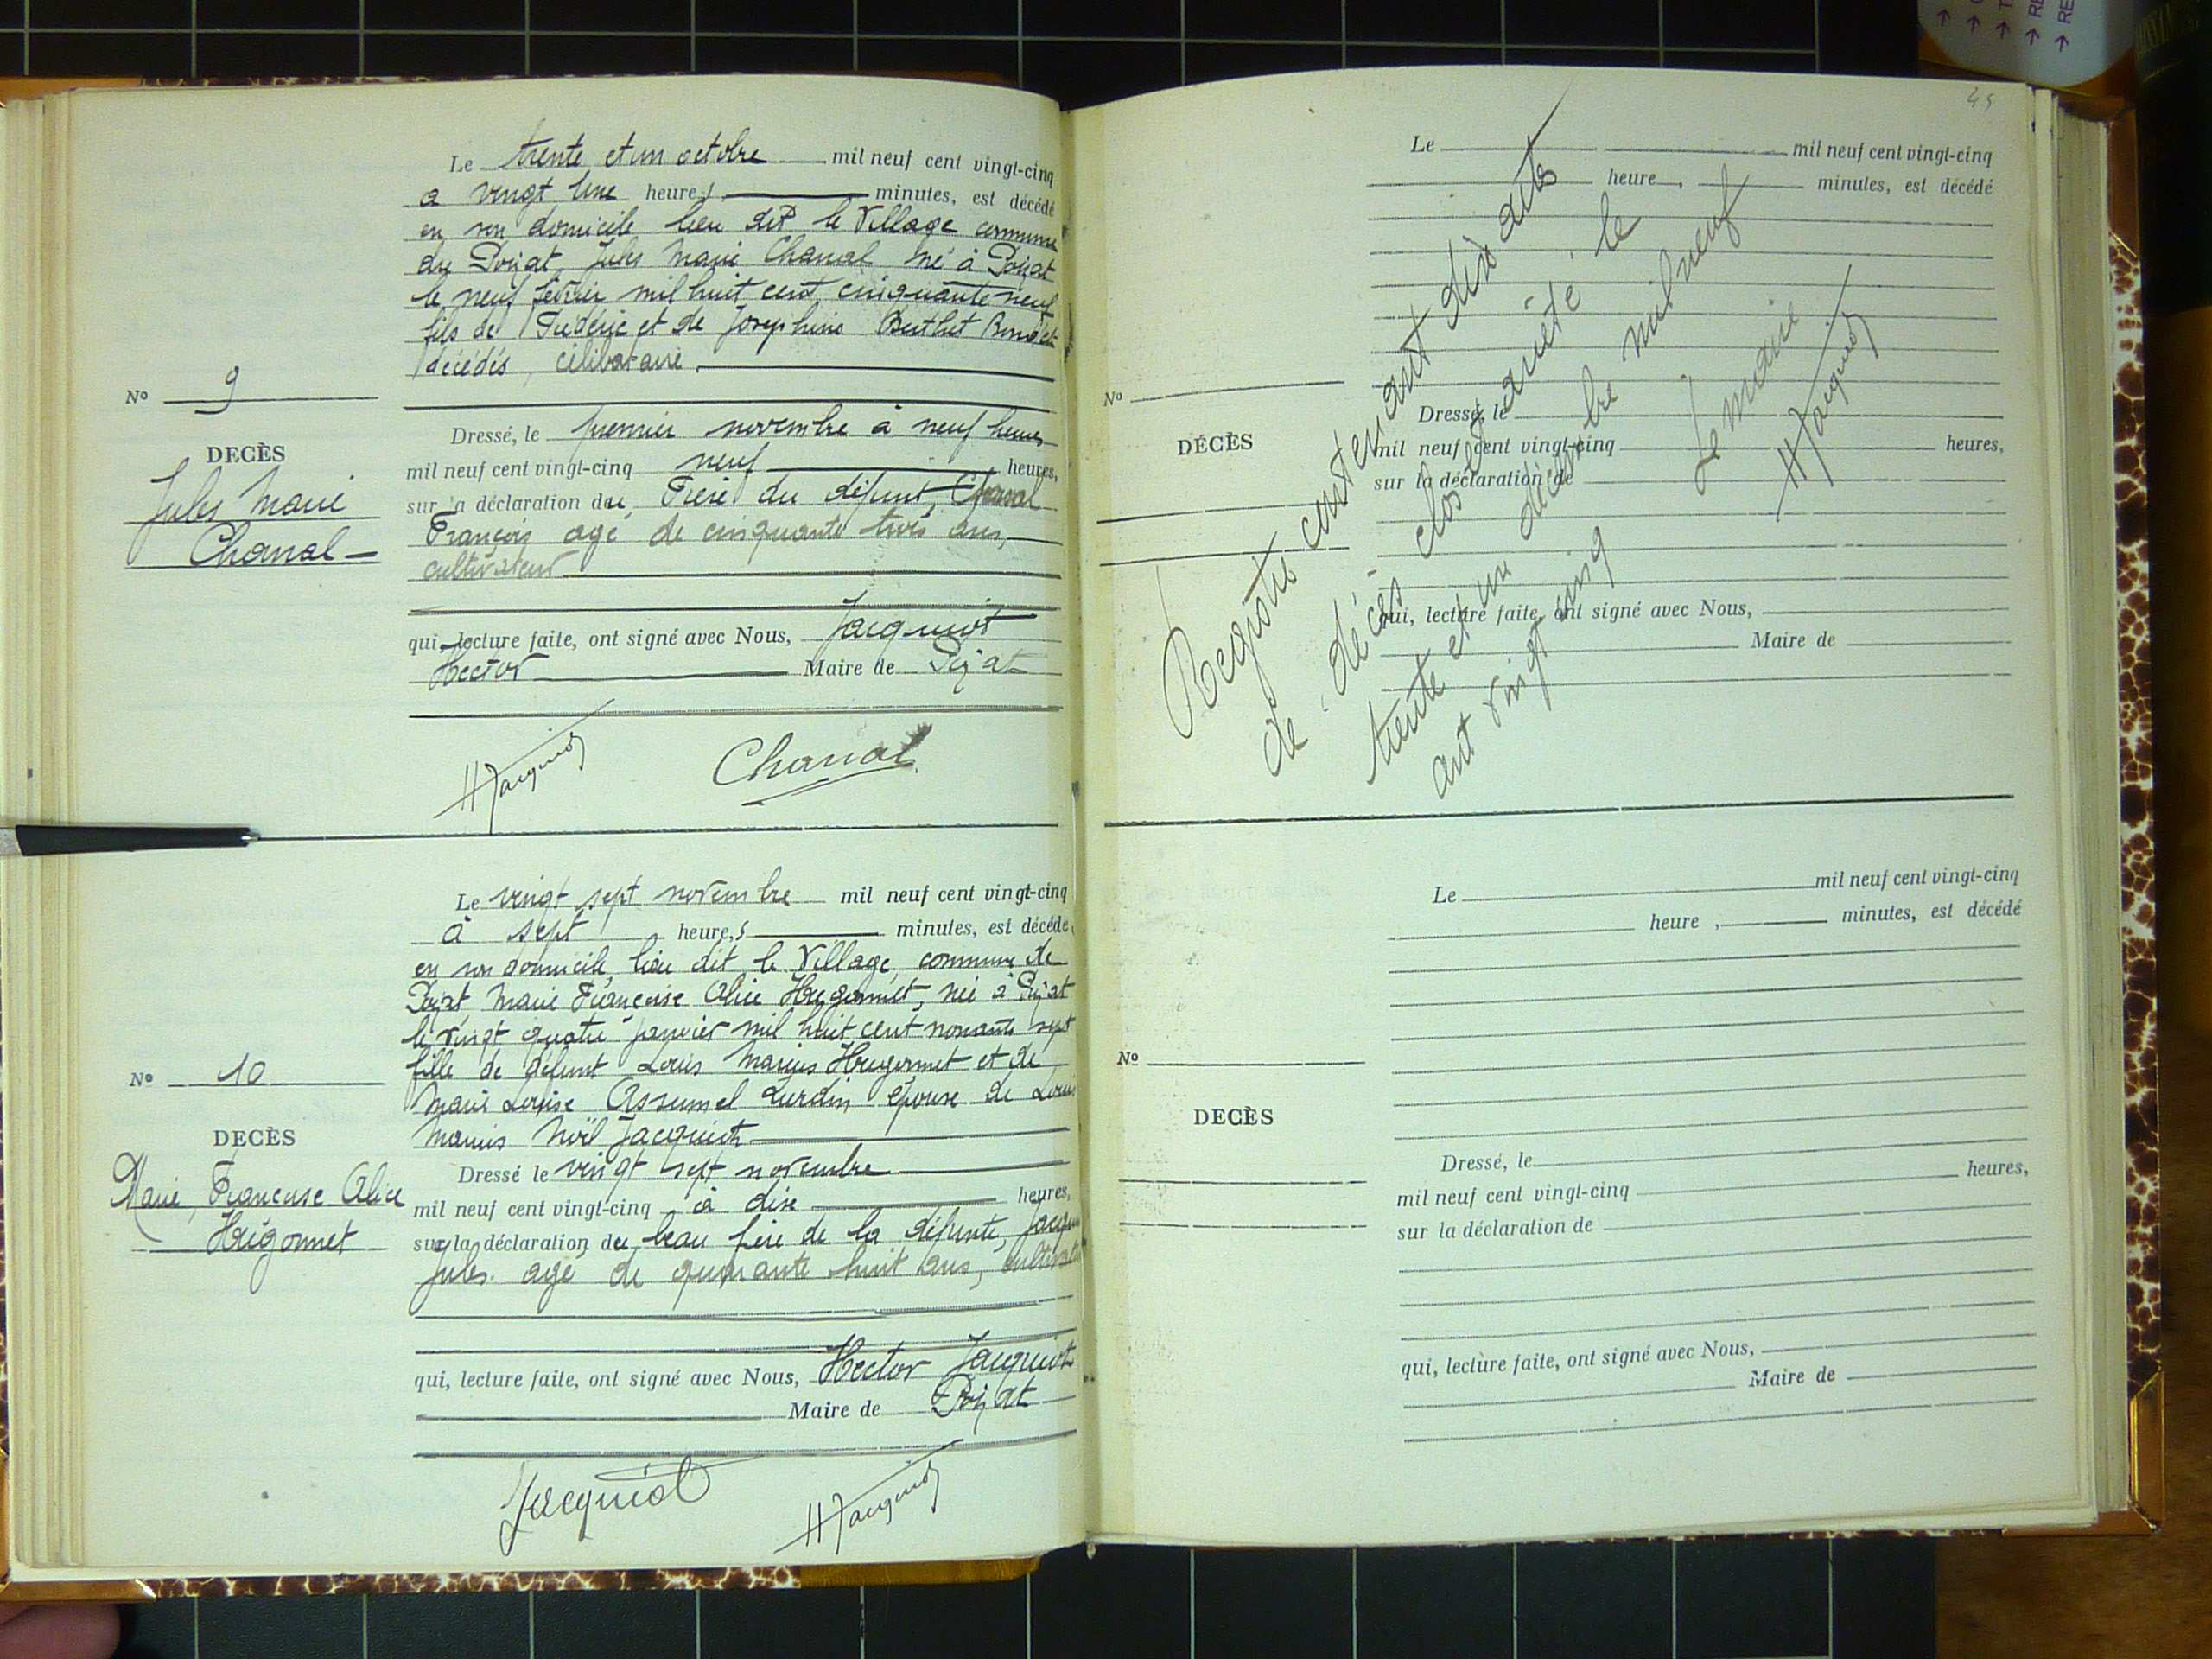 Le trente et un octobre mil neuf cent vingt-cinq
a vingt une heures minutes, est décédé
en son domicile lieu dit le Village commune
du Poizat, Jules Marie Chanal né à Poizat
le neuf février mil huit cent cinquante neuf
fils de Frédéric et de Josephine Berthet Bondet
décédés, célibataire.
No 9
DECÈS
Jules Marie
Chanal
Dressé, le premier novembre à neuf heures
mil neuf cent vingt-cinq neuf heures,
sur la déclaration du Frère du défunt, Chanal
François agé de cinquante trois ans,
cultivateur
qui, lecture faite, ont signé avec Nous, Jacquiot
Hector Maire de Poizat
HJacquiot Chanal
Le vingt sept novembre mil neuf cent vingt-cinq
à sept heures minutes, est décédé
en son domicile lieu dit le Village, commune de
Poizat Marie Françoise Alice Hugonnet, née à Poizat
le vingt quatre janvier mil huit cent nonante sept
fille de défunt Louis Marius Hugonnet et de
Marie Louise Assumel Lurdin épouse de Louis
Marius Noël Jacquiot
No 10
DECÈS
Marie, Françoise Alice
Hugonnet
Dressé le vingt sept novembre
mil neuf cent vingt-cinq à dix heures,
sur la déclaration du beau père de la défunte,
Jules agé de huit ans,
qui, lecture faite, ont signé avec Nous, Hector Jacquiot
Maire de Poizat
Jacquiot HJacquiot
45
Le mil neuf cent vingt-cinq
heure , minutes, est décédé
No
DÉCÈS
Dressé, le
mil neuf cent vingt-cinq heures,
sur la déclaration de
qui, lecture faite, ont signé avec Nous,
Maire de
Registre contenant dix actes
de décès clos et arrêté le
trente et un décembre mil neuf
cent vingt cinq
Le maire
HJacquiot
Le mil neuf cent vingt-cinq
heure , minutes, est décédé
No
DECÈS
Dressé, le
mil neuf cent vingt-cinq heures,
sur la déclaration de
qui, lecture faite, ont signé avec Nous,
Maire de